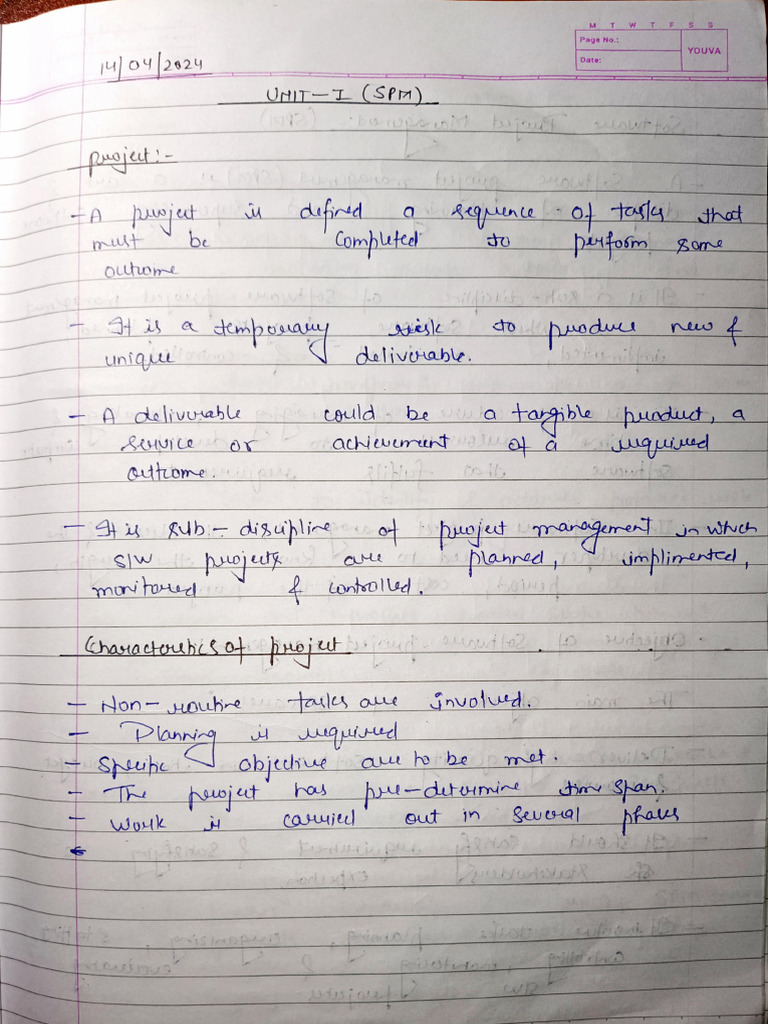 M T W T F S S
Page No.:
YOUVA
Date:
14/04/2024
UNIT-I (SPM)
project:-
- A project is defined a sequence of tasks that
must be completed to perform some
outcome
- It is a temporary risk to produce new &
unique deliverable.
- A deliverable could be a tangible product, a
service or achievement of a required
outcome.
- It is sub-discipline of project management in which
S/W projects are planned, implimented,
monitored & controlled.
Characteristics of project
- Non-routine tasks are involved.
- Planning is required
- Specific objective are to be met.
- The project has pre-determine time span.
- Work is carried out in several phases
-